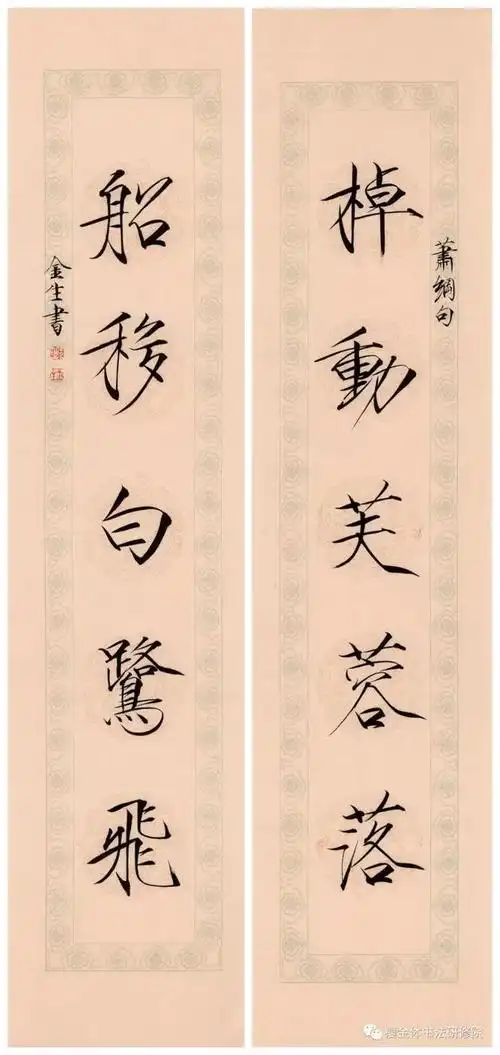 棹動芙蓉落
蕭綱句
船移白鷺飛
金生書
瘦金体书法研修院